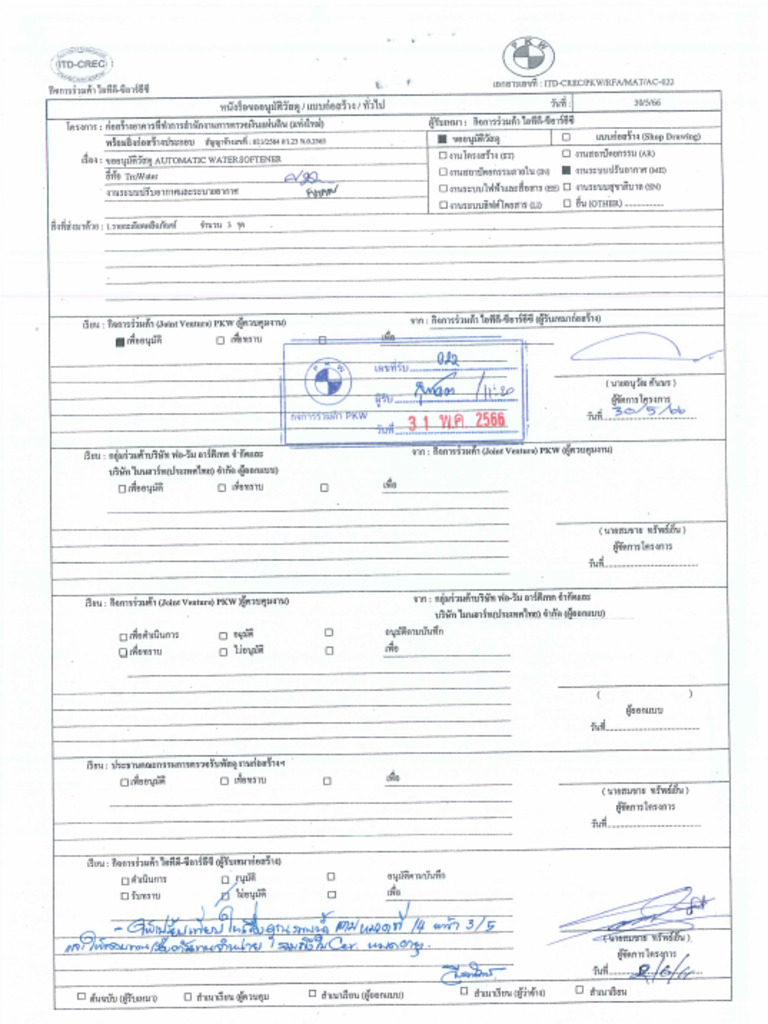 ITD-CREC
PKW
กิจการร่วมค้า ไอทีดี-ซีอาร์อีซี
เอกสารเลขที่ : ITD-CREC/PKW/RFA/MAT/AC-022
หนังสือขออนุมัติวัสดุ / แบบก่อสร้าง / ทั่วไป วันที่ : 30/5/66
โครงการ : ก่อสร้างอาคารที่ทำการสำนักงานการตรวจเงินแผ่นดิน (แห่งใหม่) ผู้รับเหมา : กิจการร่วมค้า ไอทีดี-ซีอาร์อีซี
พร้อมสิ่งก่อสร้างประกอบ สัญญาจ้างเลขที่ ขออนุมัติวัสดุ แบบก่อสร้าง (Shop Drawing)
เรื่อง : ขออนุมัติวัสดุ AUTOMATIC WATER SOFTENER งานโครงสร้าง (ST) งานสถาปัตยกรรม (AR)
ยี่ห้อ TruWater งานสถาปัตยกรรมภายใน (IN) งานระบบปรับอากาศ (ME)
งานระบบปรับอากาศและระบายอากาศ งานระบบไฟฟ้าและสื่อสาร (EE) งานระบบสุขาภิบาล (SN)
งานระบบลิฟต์โดยสาร (LI) อื่น (OTHER)
สิ่งที่ส่งมาด้วย : 1.รายละเอียดผลิตภัณฑ์ จำนวน 3 ชุด
เรียน : กิจการร่วมค้า (Joint Venture) PKW (ผู้ควบคุมงาน) จาก : กิจการร่วมค้า ไอทีดี-ซีอาร์อีซี (ผู้รับเหมาก่อสร้าง)
เพื่ออนุมัติ เพื่อทราบ เพื่อ
PKW
กิจการร่วมค้า PKW
เลขที่รับ 022
ผู้รับ /11:20
วันที่ 31 พ.ค. 2566
ผู้จัดการโครงการ
วันที่ 30/5/66
เรียน : กลุ่มร่วมค้าบริษัท จาก : กิจการร่วมค้า (Joint Venture) PKW (ผู้ควบคุมงาน)
เพื่ออนุมัติ เพื่อทราบ เพื่อ
(นายสมชาย ทรัพย์เย็น)
ผู้จัดการโครงการ
วันที่
เรียน : กิจการร่วมค้า (Joint Venture) PKW (ผู้ควบคุมงาน) จาก : กลุ่มร่วมค้าบริษัท
เพื่อดำเนินการ อนุมัติ อนุมัติตามบันทึก
เพื่อทราบ ไม่อนุมัติ เพื่อ
( )
ผู้ออกแบบ
วันที่
เรียน : ประธานคณะกรรมการตรวจรับพัสดุ งานก่อสร้างฯ
เพื่ออนุมัติ เพื่อทราบ เพื่อ
(นายสมชาย ทรัพย์เย็น)
ผู้จัดการโครงการ
วันที่
เรียน : กิจการร่วมค้า ไอทีดี-ซีอาร์อีซี (ผู้รับเหมาก่อสร้าง)
ดำเนินการ อนุมัติ อนุมัติตามบันทึก
รับทราบ ไม่อนุมัติ เพื่อ
ตามหมวดที่ 14 หน้า 3/5
(นายสมชาย ทรัพย์เย็น)
ผู้จัดการโครงการ
วันที่
ต้นฉบับ (ผู้รับเหมา) สำเนาเรียน (ผู้ควบคุม) สำเนาเรียน (ผู้ออกแบบ) สำเนาเรียน (ผู้ว่าจ้าง) สำเนาเรียน